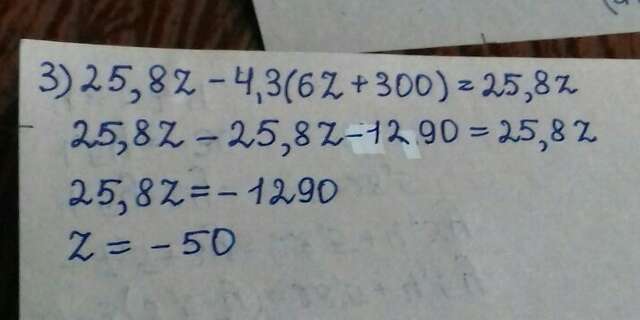 3) 25,8z - 4,3(6z + 300) = 25,8z
25,8z - 25,8z - 1290 = 25,8z
25,8z = - 1290
z = - 50